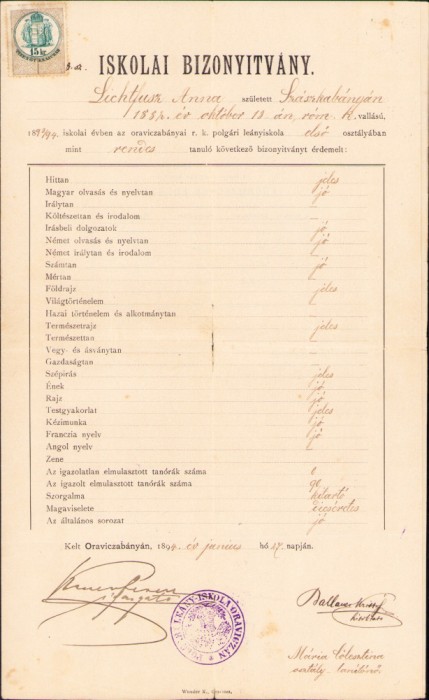 15 kr.
ISKOLAI BIZONYITVÁNY.
Lichtfusz Anna született Szászkabányán
1884. év október 13 án, róm. k. vallású,
1893/94. iskolai évben az oraviczabányai r. k. polgári leányiskola első osztályában
mint rendes tanuló következő bizonyitványt érdemelt:
Hittan jeles
Magyar olvasás és nyelvtan jó
Irálytan –
Költészettan és irodalom –
Irásbeli dolgozatok jó
Német olvasás és nyelvtan jó
Német irálytan és irodalom –
Számtan jó
Mértan
Földrajz jeles
Világtörténelem –
Hazai történelem és alkotmánytan –
Természetrajz jeles
Természettan –
Vegy- és ásványtan –
Gazdaságtan –
Szépirás jeles
Ének jó
Rajz jó
Testgyakorlat jeles
Kézimunka jó
Franczia nyelv
Angol nyelv
Zene
Az igazolatlan elmulasztott tanórák száma
Az igazolt elmulasztott tanórák száma
Szorgalma kitartó
Magaviselete dicséretes
Az általános sorozat jó
Kelt Oraviczabányán, 1894. év junius hó 17. napján.
igazgató
POLGÁRI LEÁNY-ISKOLA ORAVICZÁN
Mária
osztály tanítónő